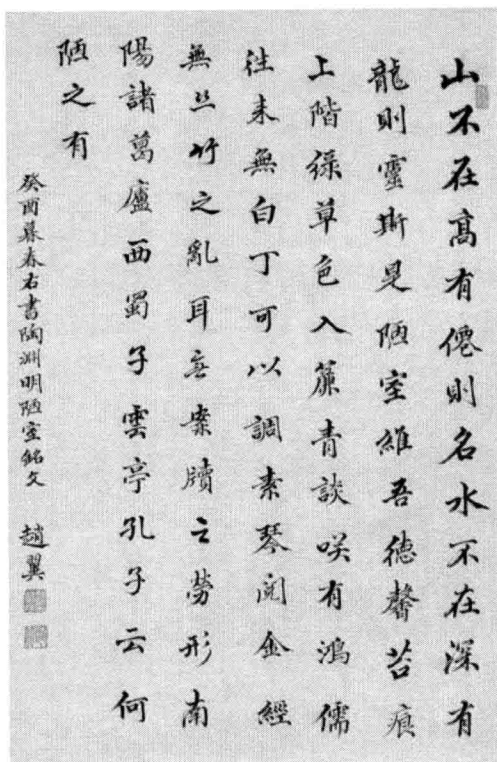 山不在髙有僊則名水不在深有
龍則靈斯是陋室維吾德馨苔痕
上階緑草色入簾青談咲有鴻儒
往来無白丁可以調素琴閱金經
無丝竹之亂耳无案牘之勞形南
陽諸葛廬西蜀子雲亭孔子云何
陋之有
癸酉暮春右書陶淵明陋室銘文 趙翼